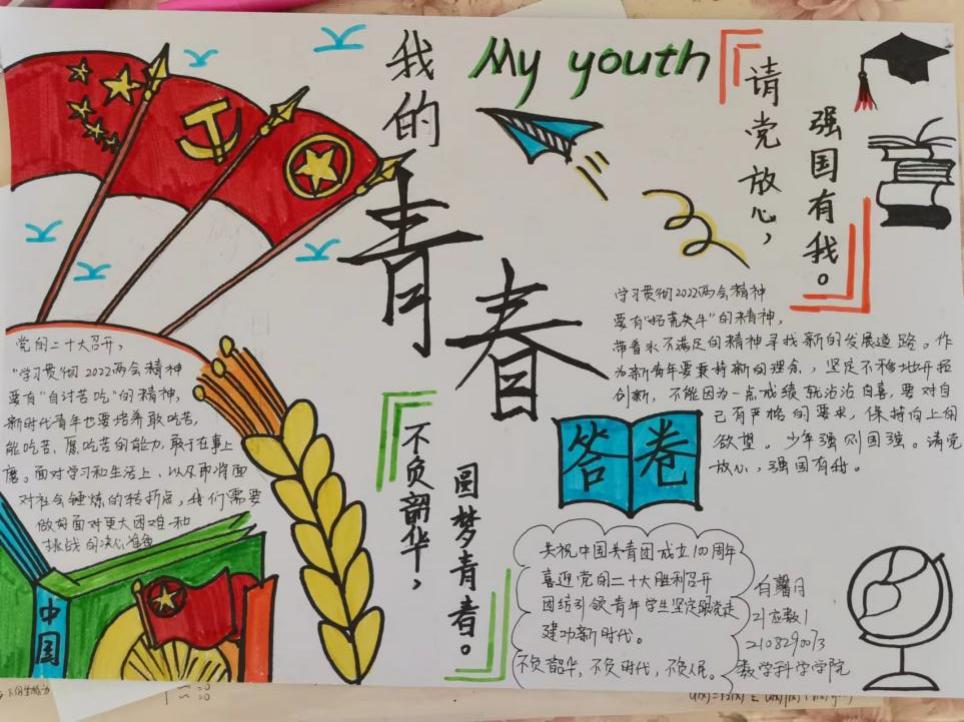 我的
青春
My youth
请党放心，
强国有我。
党的二十大召开，
"学习贯彻2022两会精神
要有"自讨苦吃"的精神，
新时代青年也要培养敢吃苦，
能吃苦、愿吃苦的能力，敢于在事上
磨。面对学习和生活上、以及即将面
对社会锤炼的转折点，我们需要
做好面对更大困难和
挑战的决心准备
中国
不负韶华，
圆梦青春。
学习贯彻2022两会精神
要有"拓荒牛"的精神，
带着永不满足的精神寻找新的发展道路。作
为新青年要秉持新的理念，坚定不移地开拓
创新，不能因为一点成绩就沾沾自喜，要对自
己有严格的要求，保持向上的
欲望。少年强则国强。请党
放心，强国有我。
答卷
庆祝中国共青团成立100周年
喜迎党的二十大胜利召开
团结引领青年学生坚定跟党走
建功新时代。
不负韶华，不负时代，不负人民。
白馨月
21应数1
2108290013
数学科学学院